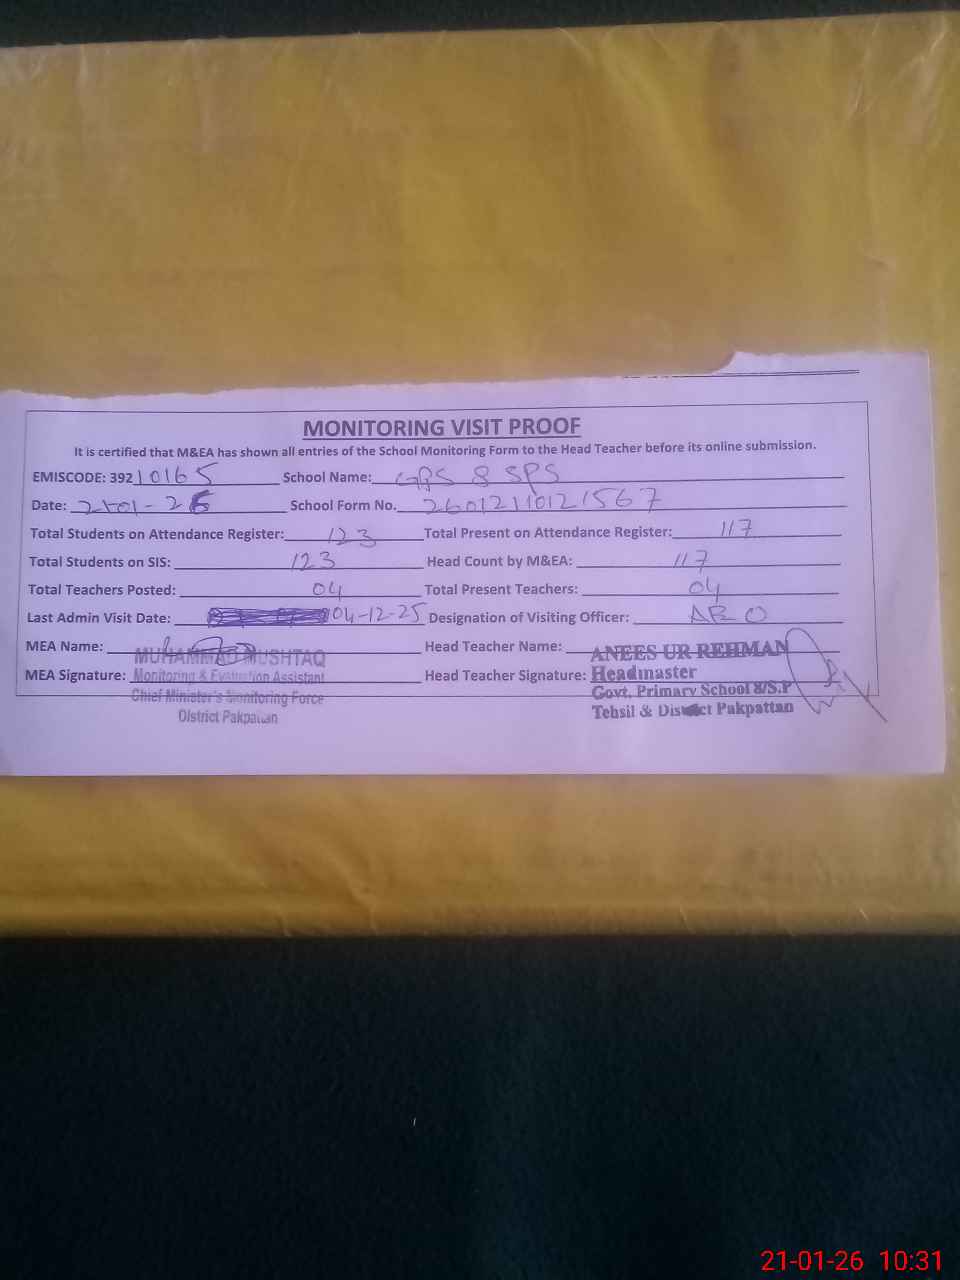 MONITORING VISIT PROOF
It is certified that M&EA has shown all entries of the School Monitoring Form to the Head Teacher before its online submission.
EMISCODE: 39210165 School Name: GPS 8 SPS
Date: 21-01-26 School Form No. 26012110121567
Total Students on Attendance Register: 123 Total Present on Attendance Register: 117
Total Students on SIS: 123 Head Count by M&EA: 117
Total Teachers Posted: 04 Total Present Teachers: 04
Last Admin Visit Date: 04-12-25 Designation of Visiting Officer: AEO
MEA Name: MUHAMMAD MUSHTAQ Head Teacher Name: ANEES UR REHMAN
MEA Signature: Monitoring & Evaluation Assistant Head Teacher Signature: Headmaster
Chief Minister's Monitoring Force Govt. Primary School 8/S.P
District Pakpattan Tehsil & District Pakpattan
21-01-26 10:31